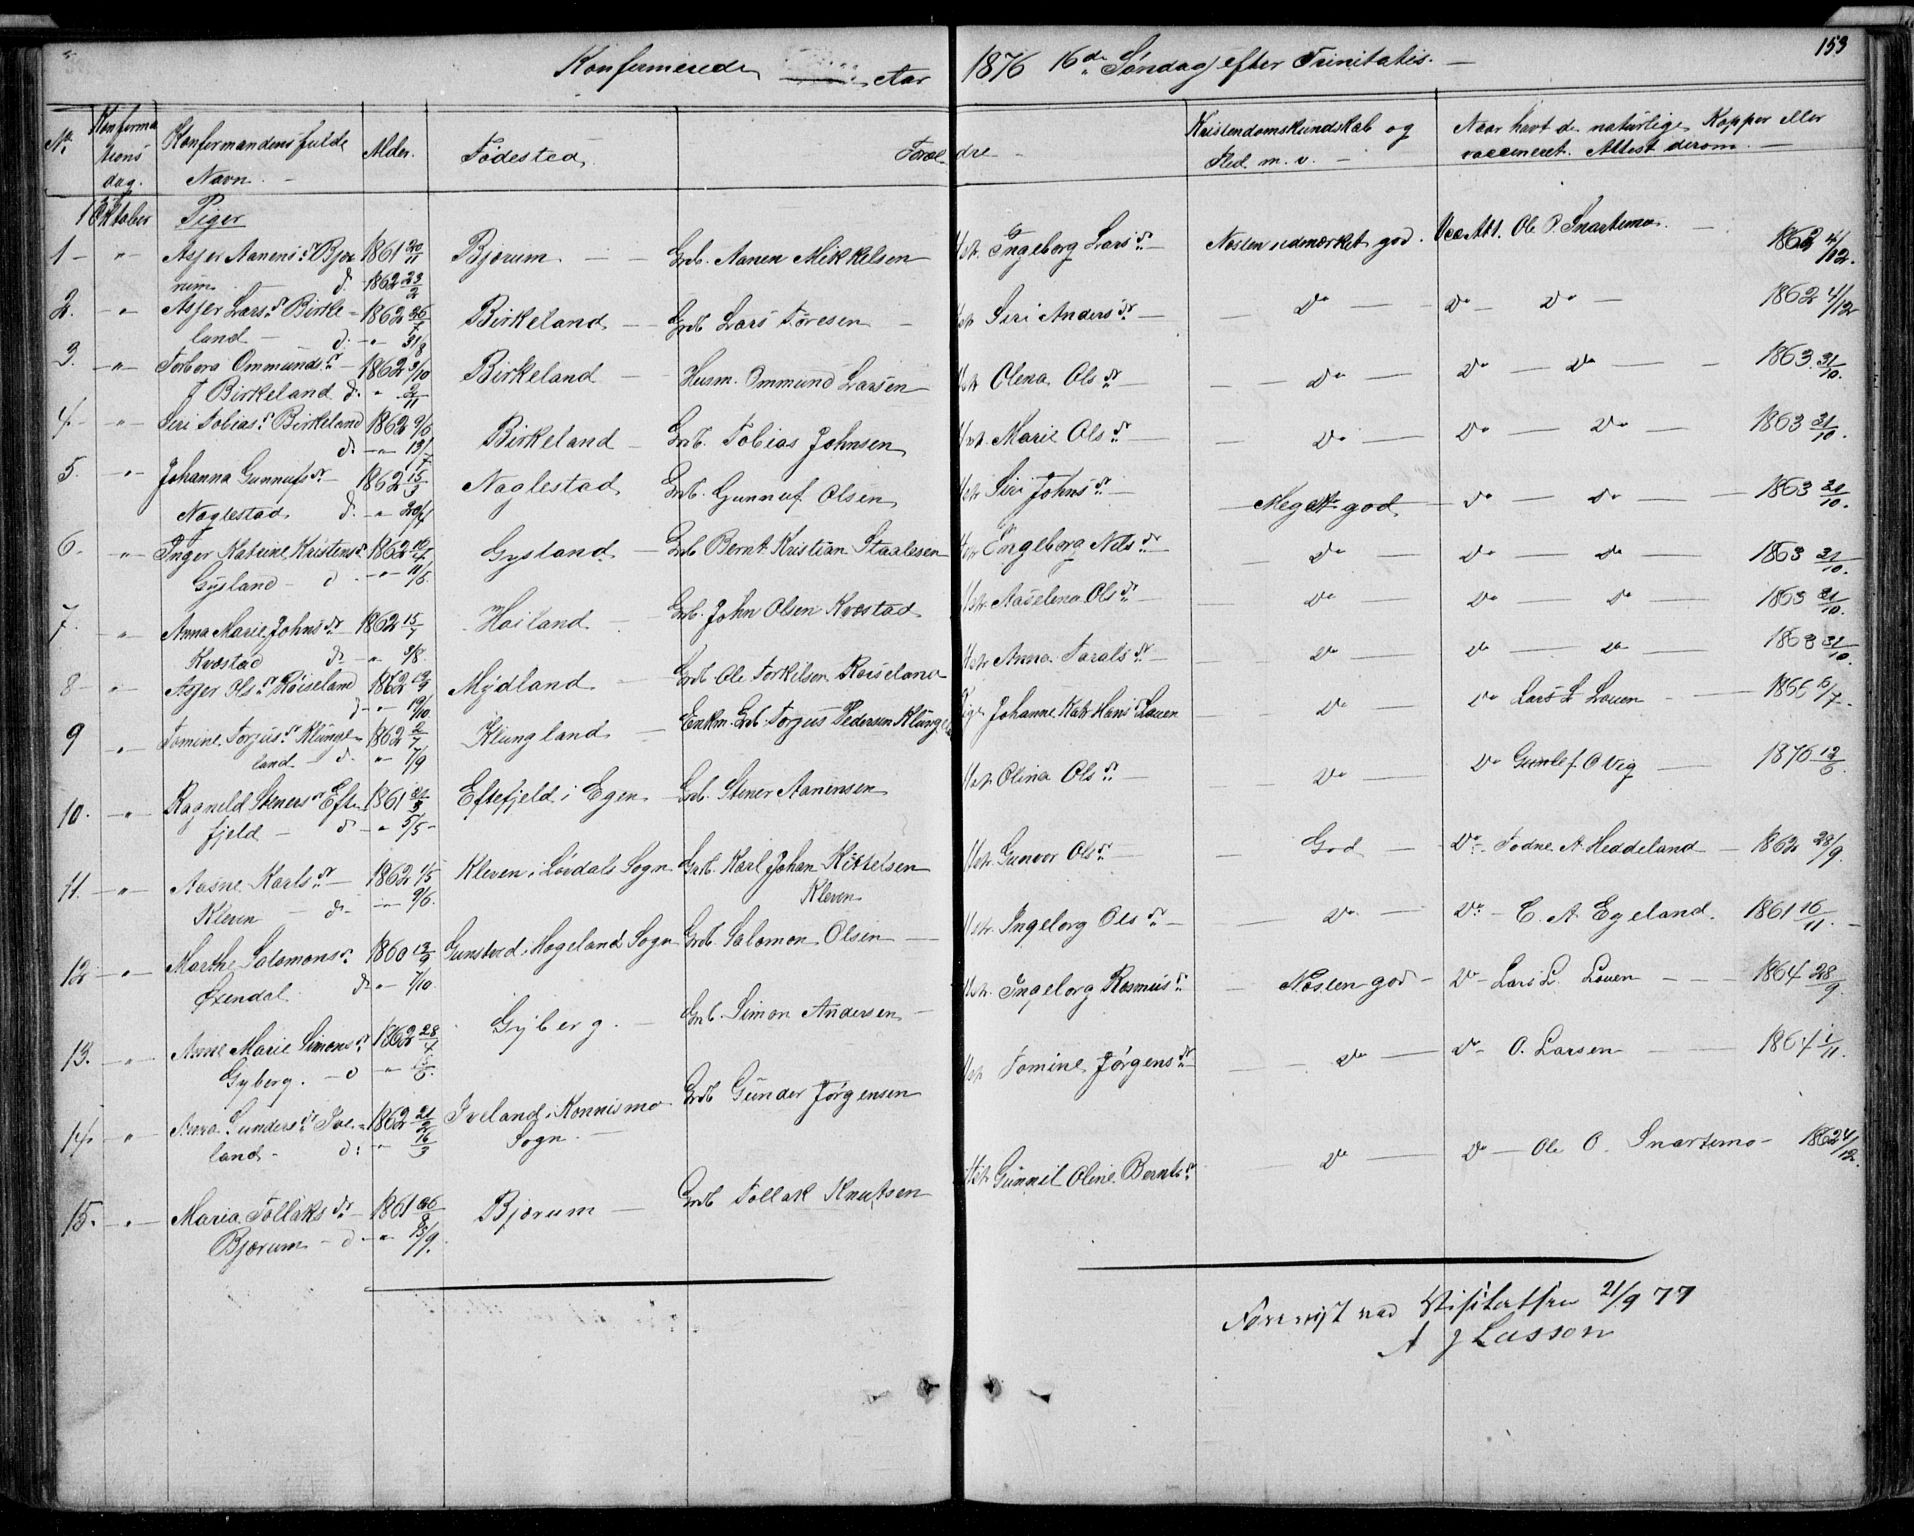 153
Konfirmerede Aar 1876 16de Søndag efter Trinitatis.
No. Konfirmationsdag. Konfirmandens fulde Navn. Alder. Fødested. Forældre Kristendomskundskab og Flid m. v. Naar havt de naturlige Kopper eller vaccineret. Attest derom.
1 Oktober Piger
1 " Asjer Aanensdr Bjærum 1861 20/11 d. 1862 23/2 Bjærum Grdb. Aanen Mikkelsen Hst. Ingeborg Larsdr Næsten udmærket god. Vac. Att. Ole O. Snartemo 1862 4/12.
2. " Asjer Larsdr Birkeland 1862 26/7 d. " 31/8 Birkeland Grdb Lars Tøresen Hst Siri Andersdr Do Do Do 1862 4/12
3. " Torbora Ommundsdr Birkeland 1862 3/10 d. " 2/11 Birkeland Husm. Ommund Larsen Hst Olena Olsdr Do Do Do 1863 31/10.
4. " Siri Tobiasdr Birkeland 1862 9/6 d. " 13/7 Birkeland Grdb. Tobias Johnsen Hst. Marie Olsdr Do Do Do 1863 31/10.
5. " Johanna Gunnufsdr Naglestad 1862 15/3 d. " 20/4 Naglestad Grdb. Gunnuf Olsen Hst Siri Johnsdr Meget god Do Do 1863 31/10.
6. " Inger Katrine Kristensdr Gysland d. " 11/5 Gysland Grdb Bernt Kristian Staalesen Hst Engeborg Nilsdr Do Do Do 1863 31/10.
7. " Anna Marie Johnsdr Kvæstad 1862 15/7 d. " 3/8 Høiland Grdb. John Olsen Kvæstad Hst. Aaselena Olsdr Do Do Do 1863 31/10.
8 " Asjer Olsdr Røiseland d. " 19/10 Mydland Grdb Ole Torkilsen Røiseland Hst Anna Taralsdr Do Do Do 1863 31/10.
9 " Tomine Torjusdr Klungeland 1862 2/7 d. " 7/9 Klungland Enkm. Grdb. Torjus Pedersen Klunge Pige Johanne Kat. Hansdr Lauen Do Do Lars L Louen
10. " Ragnild Stenersdr Eftefjeld 1861 d. " 5/5 Eftefjeld i Egen Grdb. Stener Aanensen Hst Olina Olsdr Do Do Gunlef O Vig 1876 12/6
11. " Aasne Karlsdr Kleven 1862 1/5 d. " 9/6. Kleven i Løvdals Sogn Grdb. Karl Johan Kittelsen Kleven Hst Gunvor Olsdr God Do Todne A. Heddeland 1862 28/9.
12 " Marthe Salomonsdr Øxendal 1860 13/9 d. " 7/10. Hægeland Sogn Grdb. Salomon Olsen Hst Ingeborg Olsdr Do Do C. A. Egeland. 1861 16/11.
13. " Anne Marie Simonsdr Gyberg. 1862 28/4 d Gyberg. Grdb. Simon Andersen Hst. Ingeborg Rasmusdr Næsten god Do Lars L. Louen 1864 28/9.
14. " Anna Gundersdr Iveland 1862 21/2 d: " 16/3 Iveland i Konnismo Sogn. Grdb Gunder Jørgensen Hst Tomine Jørgensdr Do Do O. Larsen 1864 1/11.
15. " Maria Tollaksdr Bjærum 1861 26/8 d " 15/9. Bjærum Grdb Tollak Knutsen Hst Gunnil Oline Berntsdr Do Do Ole O. Snartemo 1862 4/12.
Forevist ved Visitatsen 21/9 77
A J Lasson